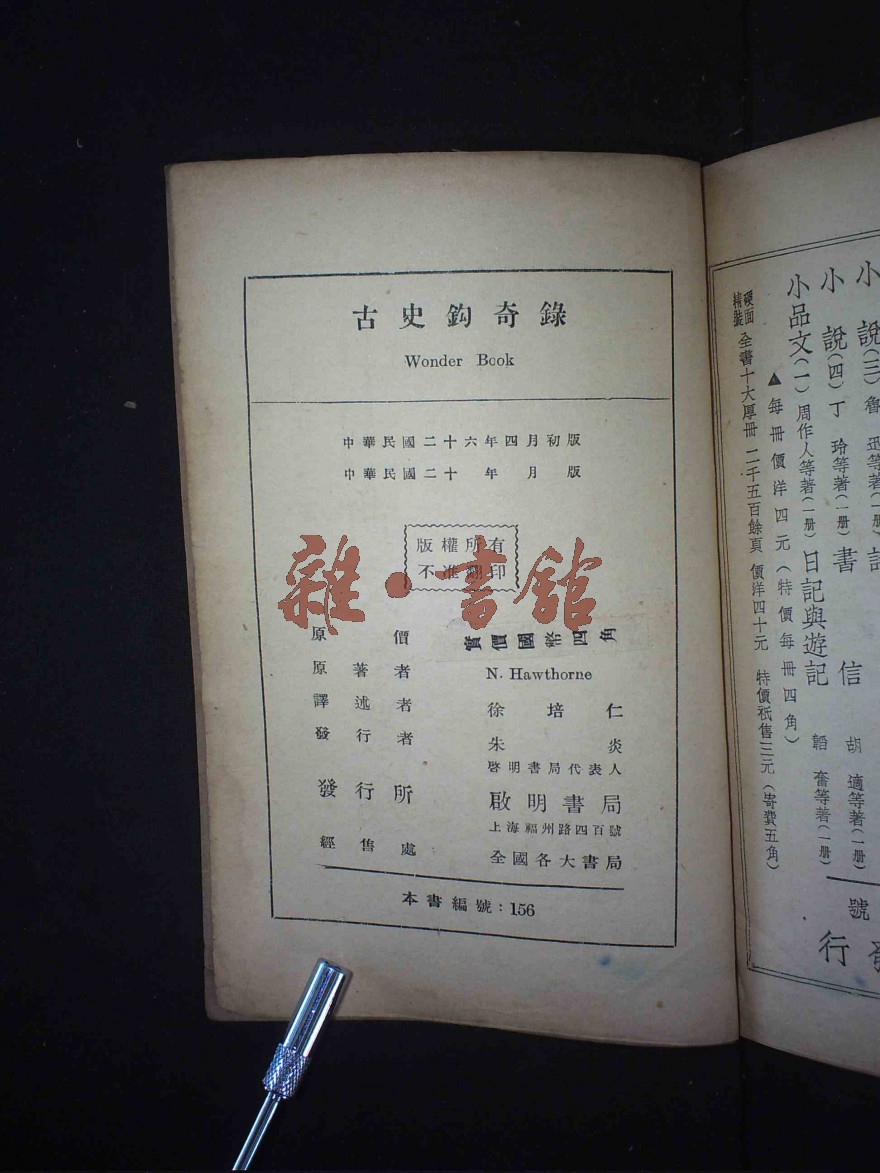 古史鈎奇錄
Wonder Book
中華民國二十六年四月初版
中華民國二十 年 月 版
版權所有
不准翻印
雜·書館
原價 實價國幣四角
原著者 N. Hawthorne
譯述者 徐培仁
發行者 朱炎
啓明書局代表人
發行所 啟明書局
上海福州路四百號
經售處 全國各大書局
本書編號：156
小說(三) 魯迅等著(一册)
小說(四) 丁玲等著(一册) 書信 胡適等著(一册)
小品文(一) 周作人等著(一册) 日記與遊記 韜奮等著(一册)
▲每冊價洋四元(特價每冊四角)
硬面精裝 全書十大厚冊 二千五百餘頁 價洋四十元 特價祇售三元(寄費五角)
號
行